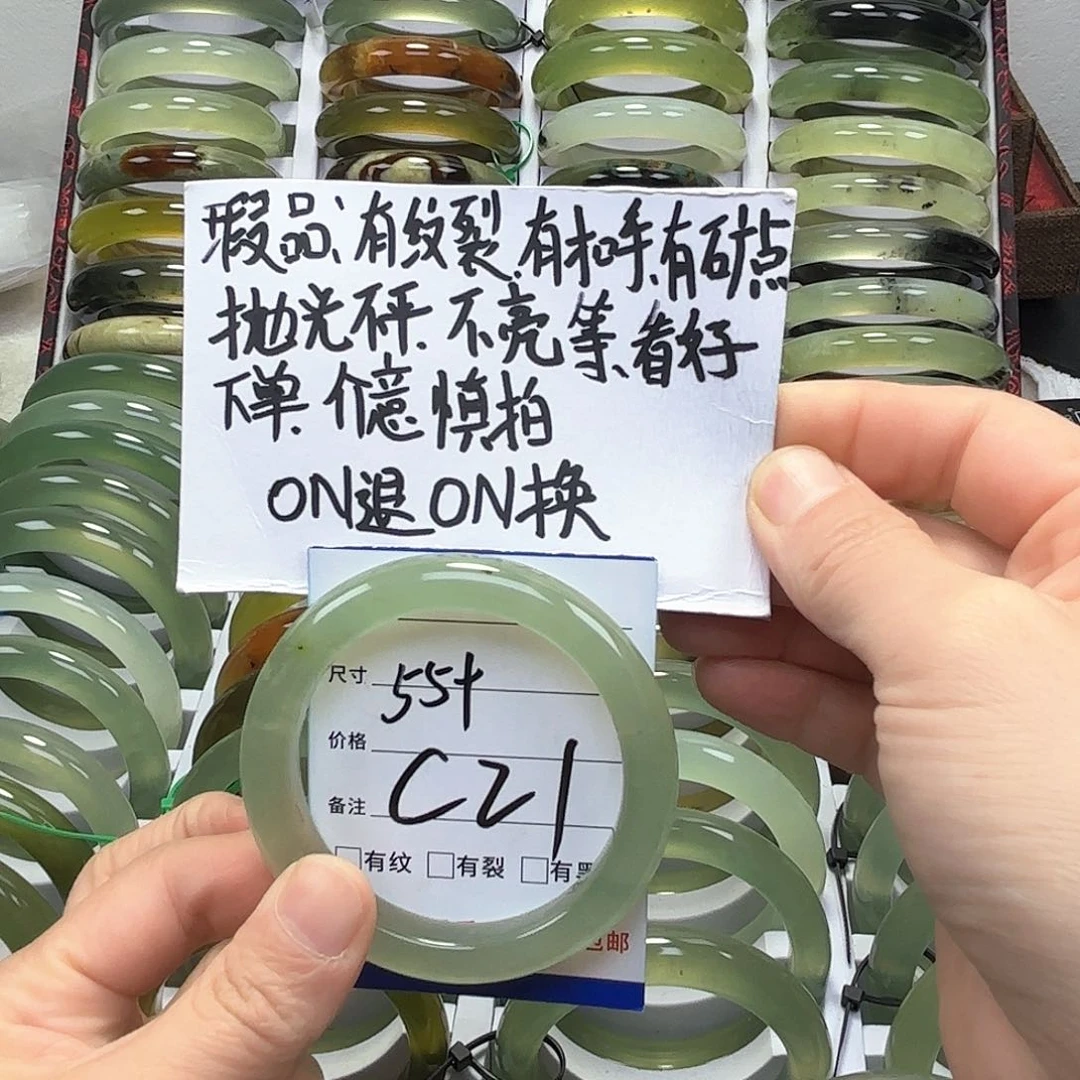 瑕品、有纹裂、有扣手、有矿点
抛光砰、不亮等、看好
下单、介意慎拍
ON退ON换
尺寸 55+
价格
备注 C21
有纹 有裂 有
包邮